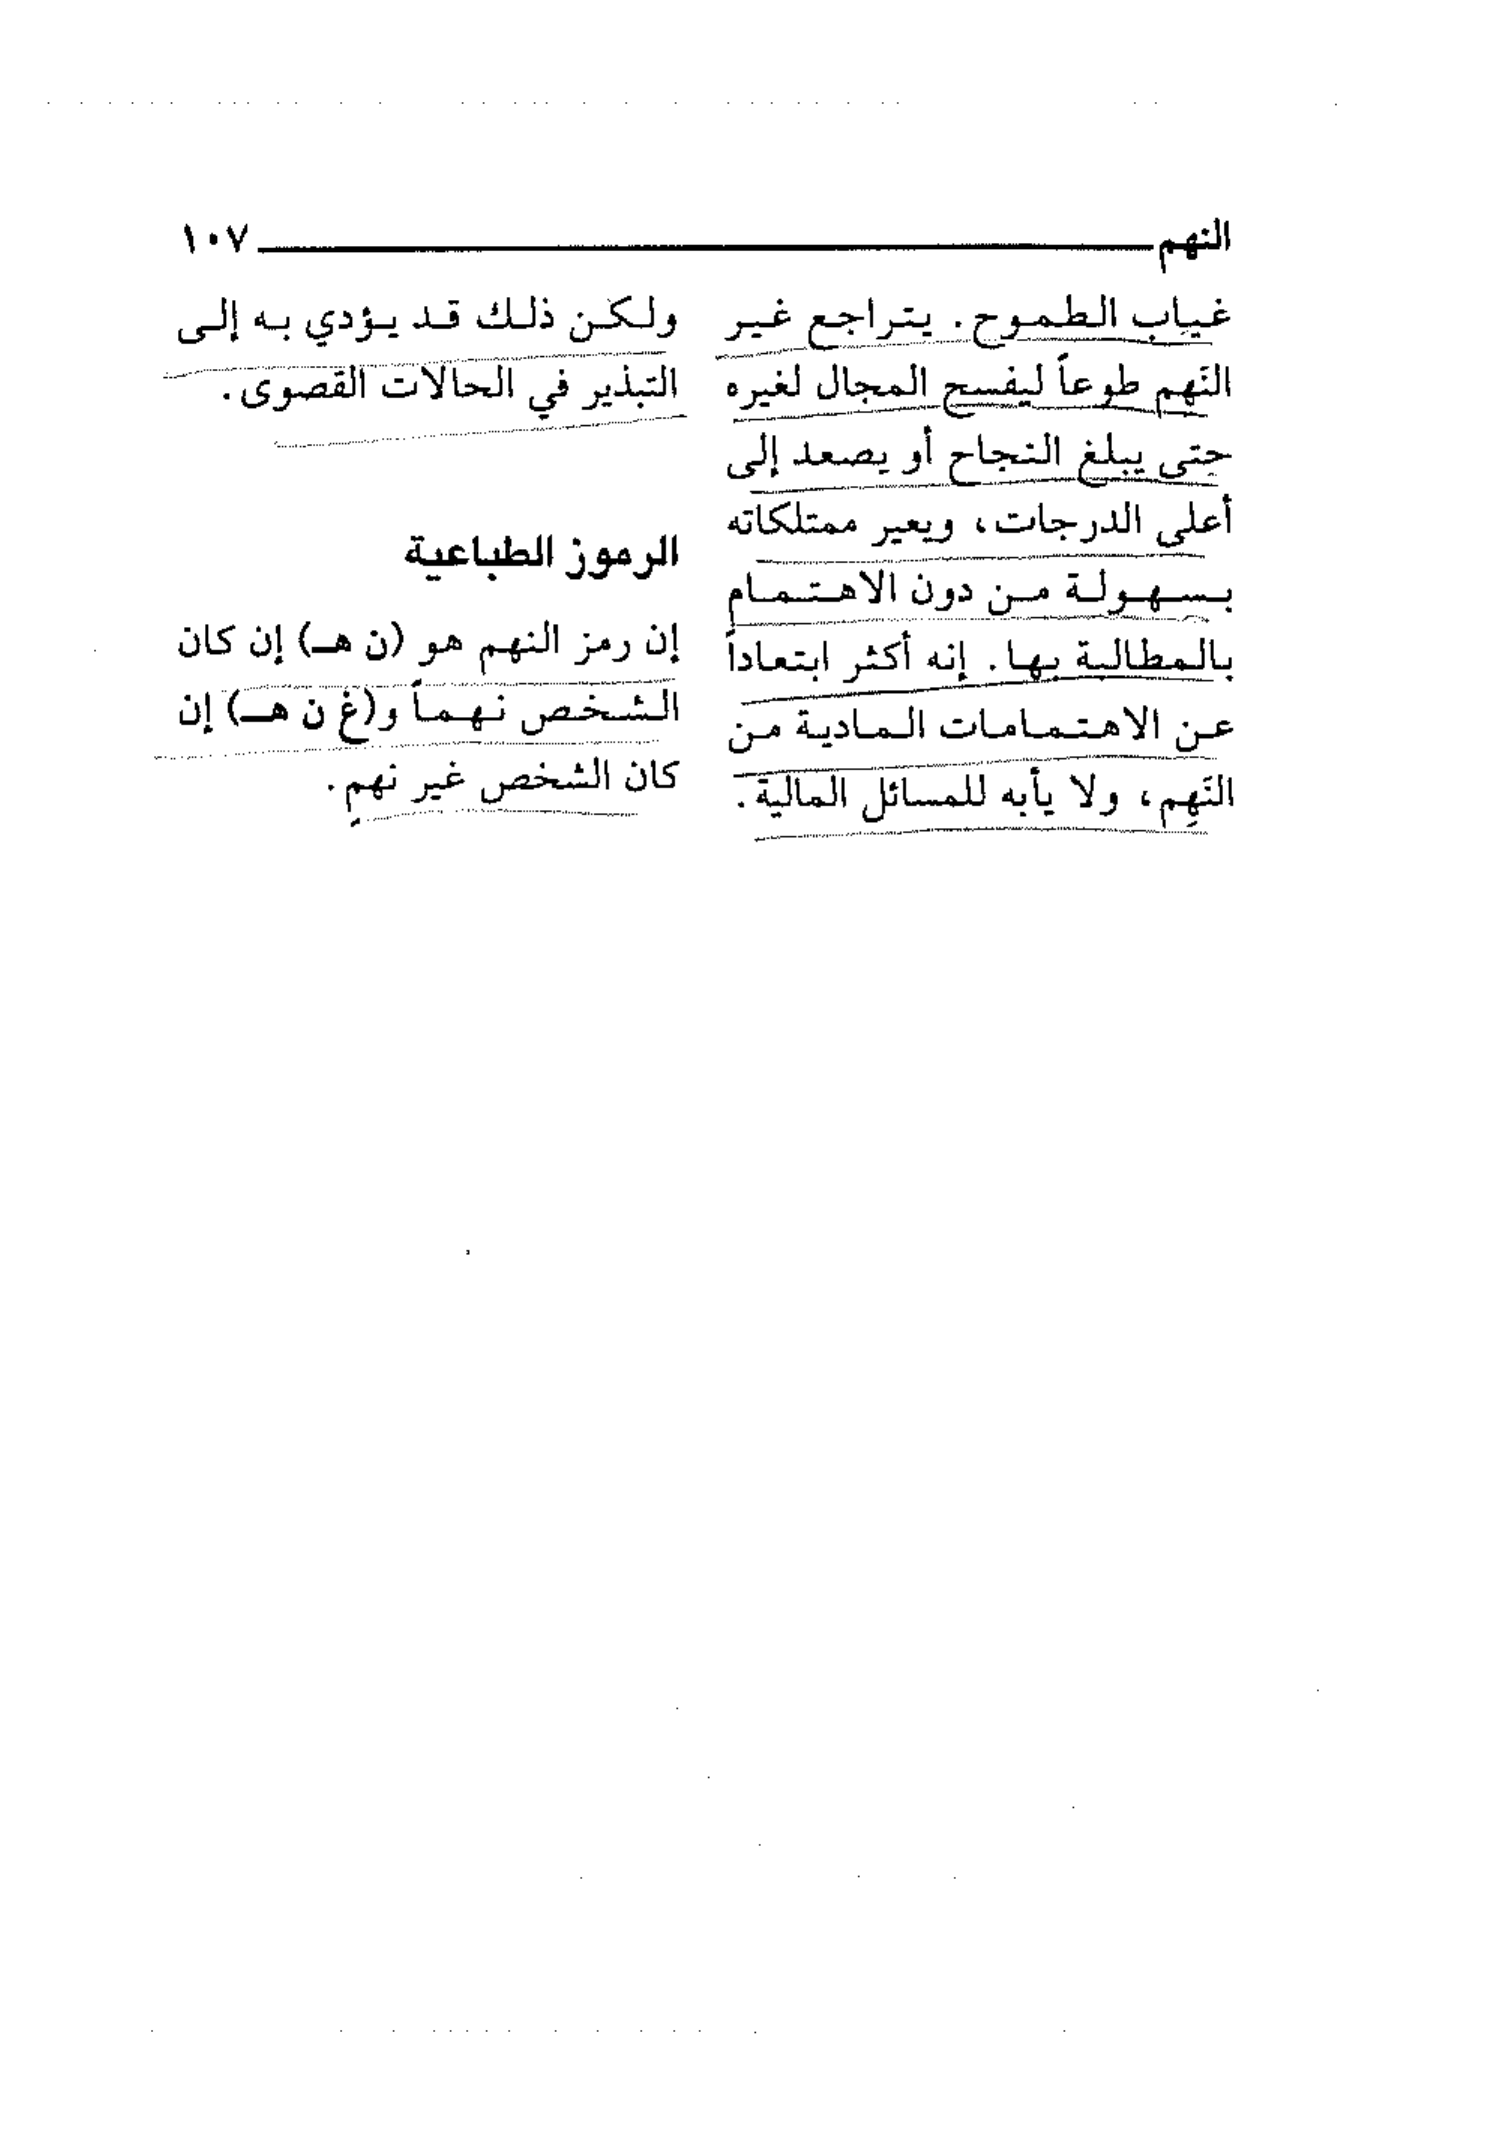 النهم ١٠٧
غياب الطموح. يتراجع غير
النَهِم طوعاً ليفسح المجال لغيره
حتى يبلغ النجاح أو يصعد إلى
أعلى الدرجات، ويعير ممتلكاته
بسهولة من دون الاهتمام
بالمطالبة بها. إنه أكثر ابتعاداً
عن الاهتمامات المادية من
النَهِم، ولا يأبه للمسائل المالية.
ولكن ذلك قد يؤدي به إلى
التبذير في الحالات القصوى.
الرموز الطباعية
إن رمز النهم هو (ن هـ) إن كان
الشخص نهماً و(غ ن هـ) إن
كان الشخص غير نهمٍ.